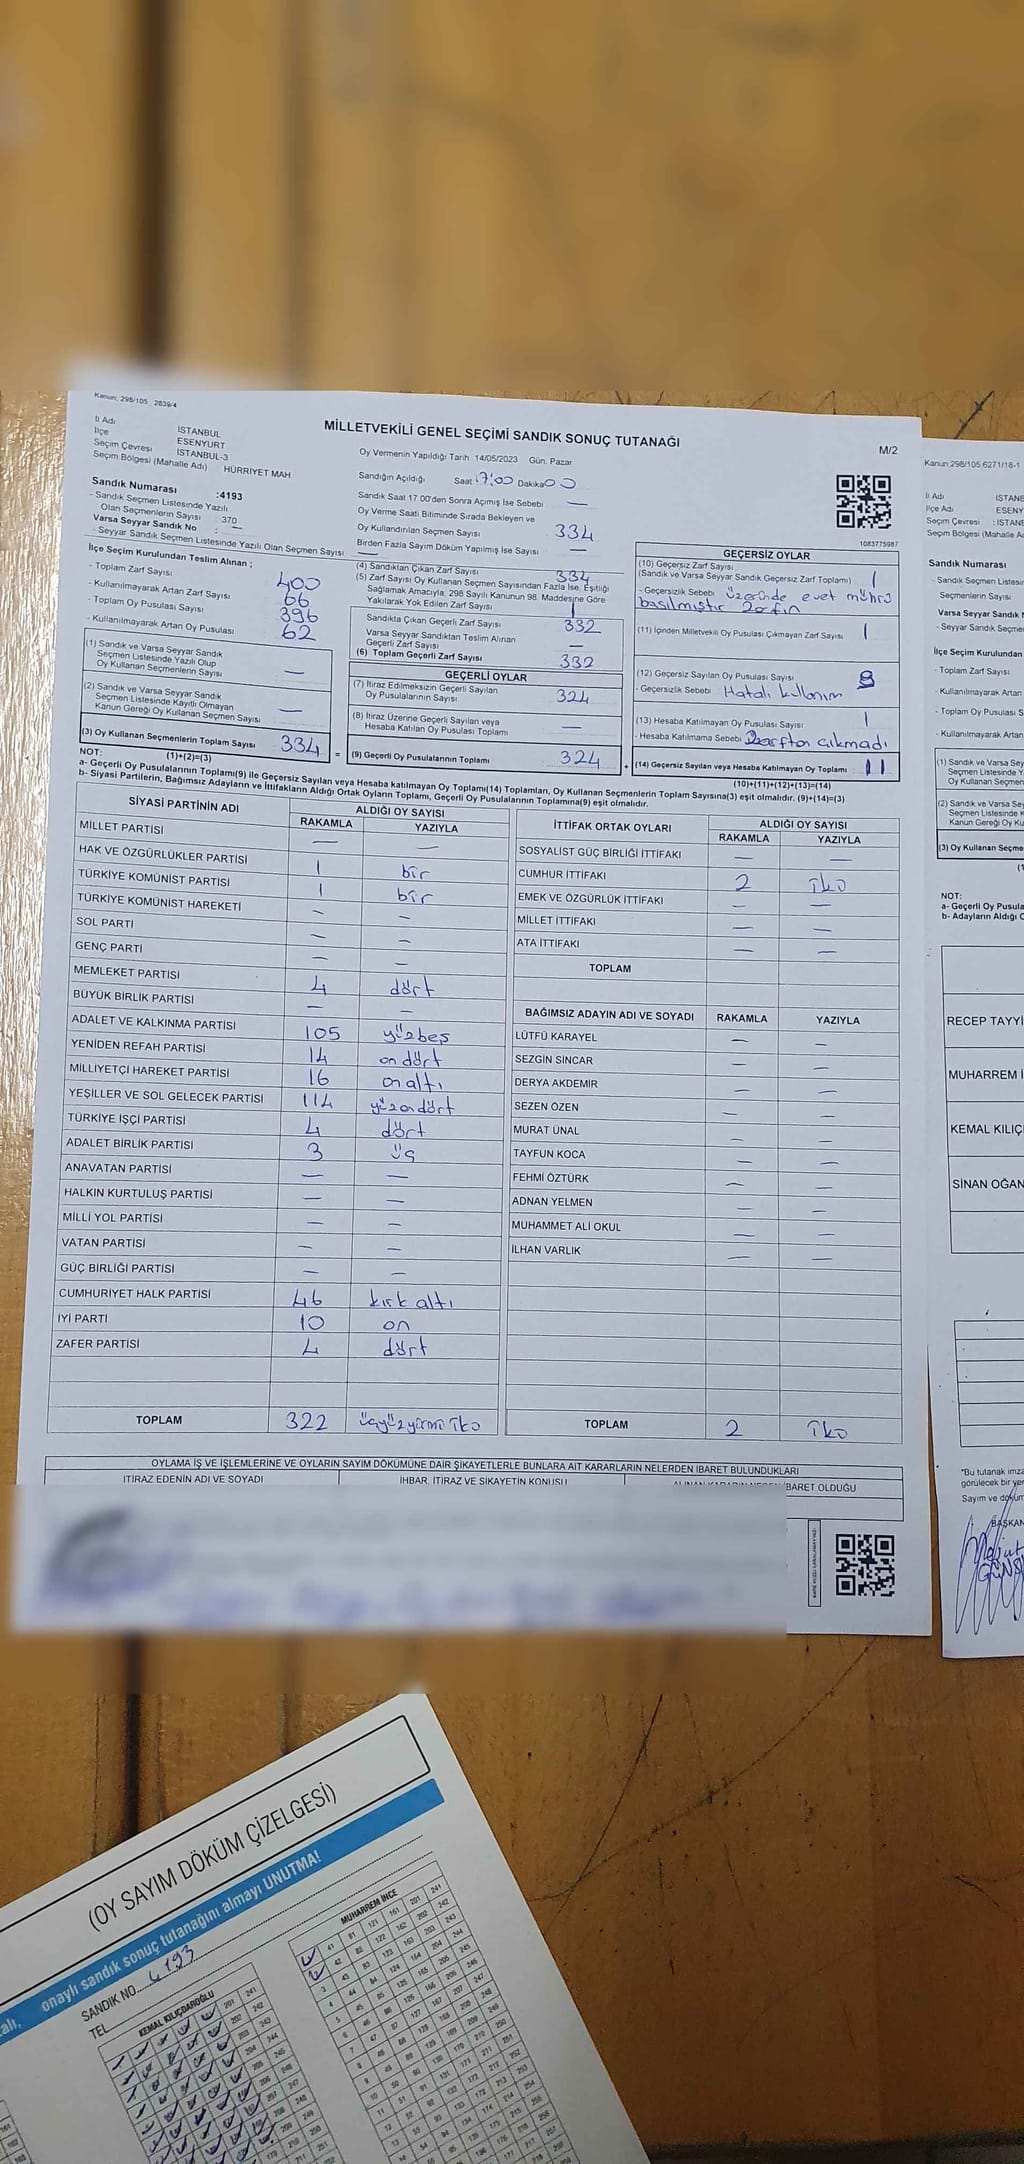 Kanun: 298/105 2839/4
MİLLETVEKİLİ GENEL SEÇİMİ SANDIK SONUÇ TUTANAĞI
M/2
İl Adı İSTANBUL
İlçe ESENYURT
Seçim Çevresi İSTANBUL-3
Seçim Bölgesi (Mahalle Adı) HÜRRİYET MAH
Sandık Numarası :4193
- Sandık Seçmen Listesinde Yazılı
Olan Seçmenlerin Sayısı : 370
Varsa Seyyar Sandık No : —
- Seyyar Sandık Seçmen Listesinde Yazılı Olan Seçmen Sayısı : —
Oy Vermenin Yapıldığı Tarih 14/05/2023 Gün. Pazar
Sandığın Açıldığı Saat 17:00 Dakika 00
Sandık Saat 17.00'den Sonra Açılmış İse Sebebi —
Oy Verme Saati Bitiminde Sırada Bekleyen ve
Oy Kullandırılan Seçmen Sayısı 334
Birden Fazla Sayım Döküm Yapılmış İse Sayısı —
1083775987
İlçe Seçim Kurulundan Teslim Alınan ;
- Toplam Zarf Sayısı 400
- Kullanılmayarak Artan Zarf Sayısı 66
- Toplam Oy Pusulası Sayısı 396
- Kullanılmayarak Artan Oy Pusulası 62
(1) Sandık ve Varsa Seyyar Sandık
Seçmen Listesinde Yazılı Olup
Oy Kullanan Seçmenlerin Sayısı —
(2) Sandık ve Varsa Seyyar Sandık
Seçmen Listesinde Kayıtlı Olmayan
Kanun Gereği Oy Kullanan Seçmen Sayısı —
(3) Oy Kullanan Seçmenlerin Toplam Sayısı 334 =
(1)+(2)=(3)
(4) Sandıktan Çıkan Zarf Sayısı 334
(5) Zarf Sayısı Oy Kullanan Seçmen Sayısından Fazla İse, Eşitliği
Sağlamak Amacıyla, 298 Sayılı Kanunun 98. Maddesine Göre
Yakılarak Yok Edilen Zarf Sayısı
Sandıkta Çıkan Geçerli Zarf Sayısı 332
Varsa Seyyar Sandıktan Teslim Alınan
Geçerli Zarf Sayısı —
(6) Toplam Geçerli Zarf Sayısı 332
GEÇERLİ OYLAR
(7) İtiraz Edilmeksizin Geçerli Sayılan
Oy Pusulalarının Sayısı 324
(8) İtiraz Üzerine Geçerli Sayılan veya
Hesaba Katılan Oy Pusulası Toplamı —
(9) Geçerli Oy Pusulalarının Toplamı 324 +
GEÇERSİZ OYLAR
(10) Geçersiz Zarf Sayısı
(Sandık ve Varsa Seyyar Sandık Geçersiz Zarf Toplamı) 1
- Geçersizlik Sebebi üzerinde evet mührü
basılmıştır Zarfın
(11) İçinden Milletvekili Oy Pusulası Çıkmayan Zarf Sayısı 1
(12) Geçersiz Sayılan Oy Pusulası Sayısı 8
- Geçersizlik Sebebi Hatalı kullanım
(13) Hesaba Katılmayan Oy Pusulası Sayısı 1
- Hesaba Katılmama Sebebi Zarftan çıkmadı
(14) Geçersiz Sayılan veya Hesaba Katılmayan Oy Toplamı 11
(10)+(11)+(12)+(13)=(14)
NOT:
a- Geçerli Oy Pusulalarının Toplamı(9) ile Geçersiz Sayılan veya Hesaba katılmayan Oy Toplamı(14) Toplamları, Oy Kullanan Seçmenlerin Toplam Sayısına(3) eşit olmalıdır. (9)+(14)=(3)
b- Siyasi Partilerin, Bağımsız Adayların ve İttifakların Aldığı Ortak Oyların Toplamı, Geçerli Oy Pusulalarının Toplamına(9) eşit olmalıdır.
SİYASİ PARTİNİN ADI ALDIĞI OY SAYISI
RAKAMLA YAZIYLA
MİLLET PARTİSİ — —
HAK VE ÖZGÜRLÜKLER PARTİSİ 1 bir
TÜRKİYE KOMÜNİST PARTİSİ 1 bir
TÜRKİYE KOMÜNİST HAREKETİ — —
SOL PARTİ — —
GENÇ PARTİ — —
MEMLEKET PARTİSİ 4 dört
BÜYÜK BİRLİK PARTİSİ — —
ADALET VE KALKINMA PARTİSİ 105 yüzbeş
YENİDEN REFAH PARTİSİ 14 on dört
MİLLİYETÇİ HAREKET PARTİSİ 16 on altı
YEŞİLLER VE SOL GELECEK PARTİSİ 114 yüzondört
TÜRKİYE İŞÇİ PARTİSİ 4 dört
ADALET BİRLİK PARTİSİ 3 üç
ANAVATAN PARTİSİ — —
HALKIN KURTULUŞ PARTİSİ — —
MİLLİ YOL PARTİSİ — —
VATAN PARTİSİ — —
GÜÇ BİRLİĞİ PARTİSİ — —
CUMHURİYET HALK PARTİSİ 46 kırk altı
İYİ PARTİ 10 on
ZAFER PARTİSİ 4 dört
TOPLAM 322 üçyüzyirmi iki
İTTİFAK ORTAK OYLARI ALDIĞI OY SAYISI
RAKAMLA YAZIYLA
SOSYALİST GÜÇ BİRLİĞİ İTTİFAKI — —
CUMHUR İTTİFAKI 2 iki
EMEK VE ÖZGÜRLÜK İTTİFAKI — —
MİLLET İTTİFAKI — —
ATA İTTİFAKI — —
TOPLAM
BAĞIMSIZ ADAYIN ADI VE SOYADI RAKAMLA YAZIYLA
LÜTFÜ KARAYEL — —
SEZGİN SİNCAR — —
DERYA AKDEMİR — —
SEZEN ÖZEN — —
MURAT ÜNAL — —
TAYFUN KOCA — —
FEHMİ ÖZTÜRK — —
ADNAN YELMEN — —
MUHAMMET ALİ OKUL — —
İLHAN VARLIK — —
TOPLAM 2 iki
OYLAMA İŞ VE İŞLEMLERİNE VE OYLARIN SAYIM DÖKÜMÜNE DAİR ŞİKAYETLERLE BUNLARA AİT KARARLARIN NELERDEN İBARET BULUNDUKLARI
İTİRAZ EDENİN ADI VE SOYADI İHBAR, İTİRAZ VE ŞİKAYETİN KONUSU ALINAN KARARIN NEDEN İBARET OLDUĞU
Kanun,298/105 6271/18-1
İl Adı İSTANB
İlçe Adı ESENY
Seçim Çevresi : İSTANB
Sandık Numarası
- Sandık Seçmen Listesi
Seçmenlerin Sayısı
Varsa Seyyar Sandık
- Seyyar Sandık Seçmen
İlçe Seçim Kurulundan
- Toplam Zarf Sayısı
- Kullanılmayarak Artan
- Toplam Oy Pusulası
- Kullanılmayarak Artan
(1) Sandık ve Varsa Sey
Seçmen Listesinde Y
Oy Kullanan Seçme
(2) Sandık ve Varsa Se
Seçmen Listesinde K
Kanun Gereği Oy Ku
(3) Oy Kullanan Seçme
NOT:
a- Geçerli Oy Pusula
b- Adayların Aldığı O
RECEP TAYYİ
MUHARREM İ
KEMAL KILIÇ
SİNAN OĞAN
*Bu tutanak imza
görülecek bir yer
Sayım ve döküm
BAŞKAN
(OY SAYIM DÖKÜM ÇİZELGESİ)
onaylı sandık sonuç tutanağını almayı UNUTMA!
SANDIK NO 4193
TEL
KEMAL KILIÇDAROĞLU
MUHARREM İNCE